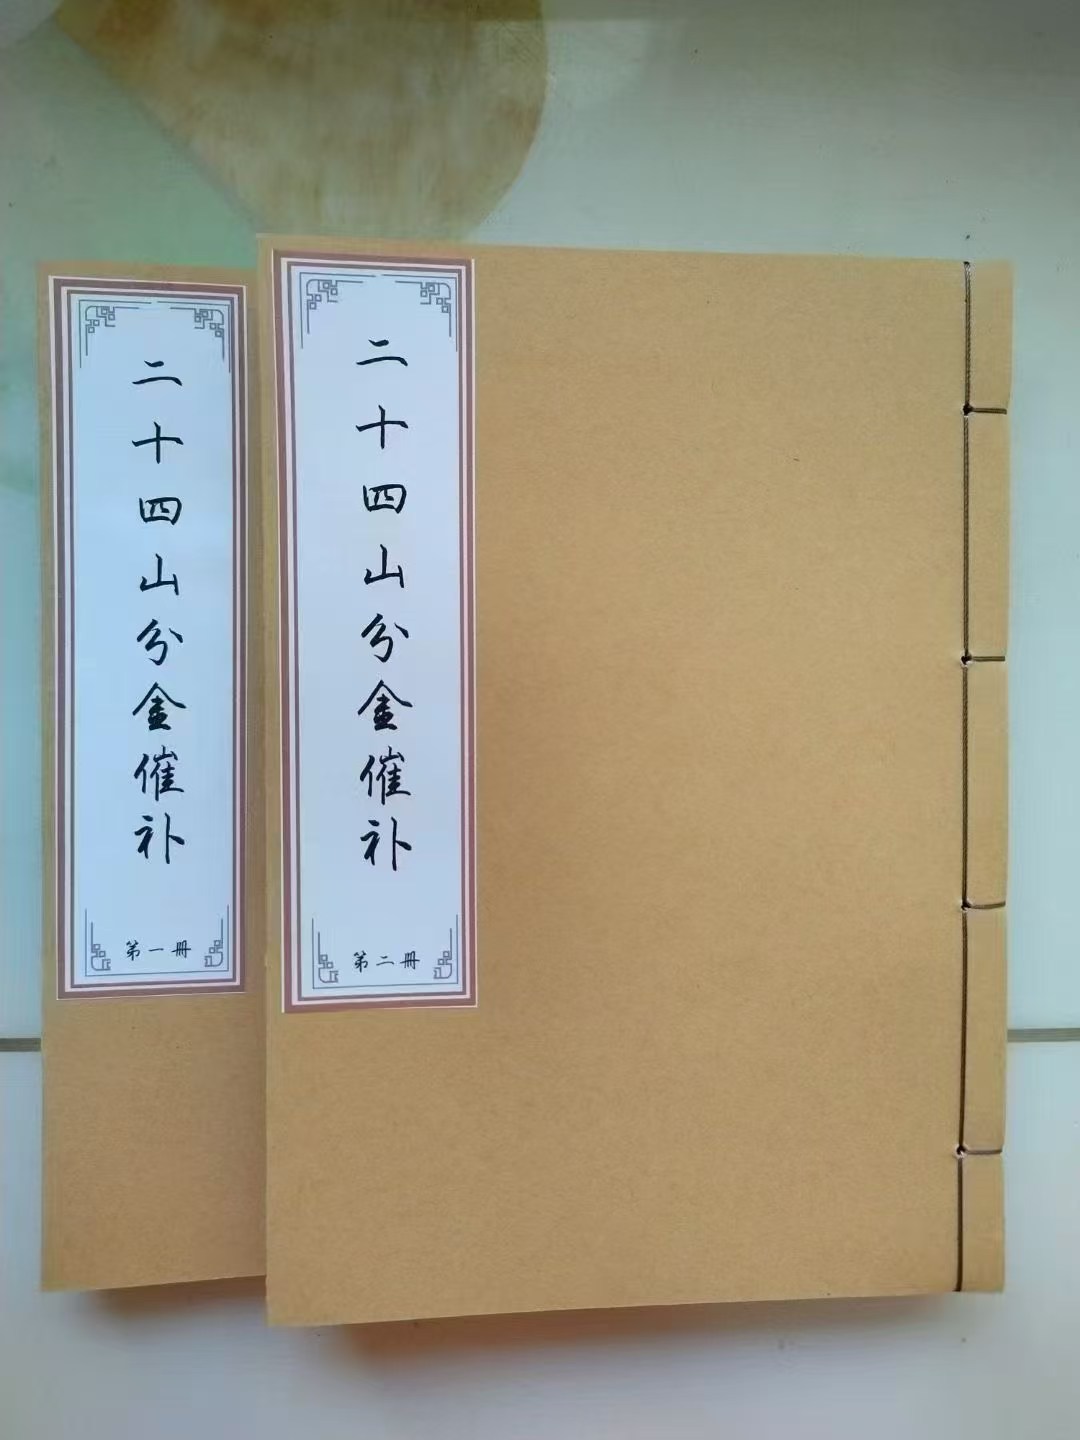 二十四山分金催补
第一册
二十四山分金催补
第二册